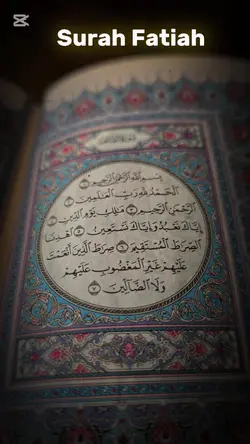 Surah Fatiah
بِسْمِ ٱللَّهِ ٱلرَّحْمَٰنِ ٱلرَّحِيمِ ١
ٱلْحَمْدُ لِلَّهِ رَبِّ ٱلْعَٰلَمِينَ ٢
ٱلرَّحْمَٰنِ ٱلرَّحِيمِ ٣ مَٰلِكِ يَوْمِ ٱلدِّينِ ٤
إِيَّاكَ نَعْبُدُ وَإِيَّاكَ نَسْتَعِينُ ٥ ٱهْدِنَا
ٱلصِّرَٰطَ ٱلْمُسْتَقِيمَ ٦ صِرَٰطَ ٱلَّذِينَ أَنْعَمْتَ
عَلَيْهِمْ غَيْرِ ٱلْمَغْضُوبِ عَلَيْهِمْ
وَلَا ٱلضَّآلِّينَ ٧